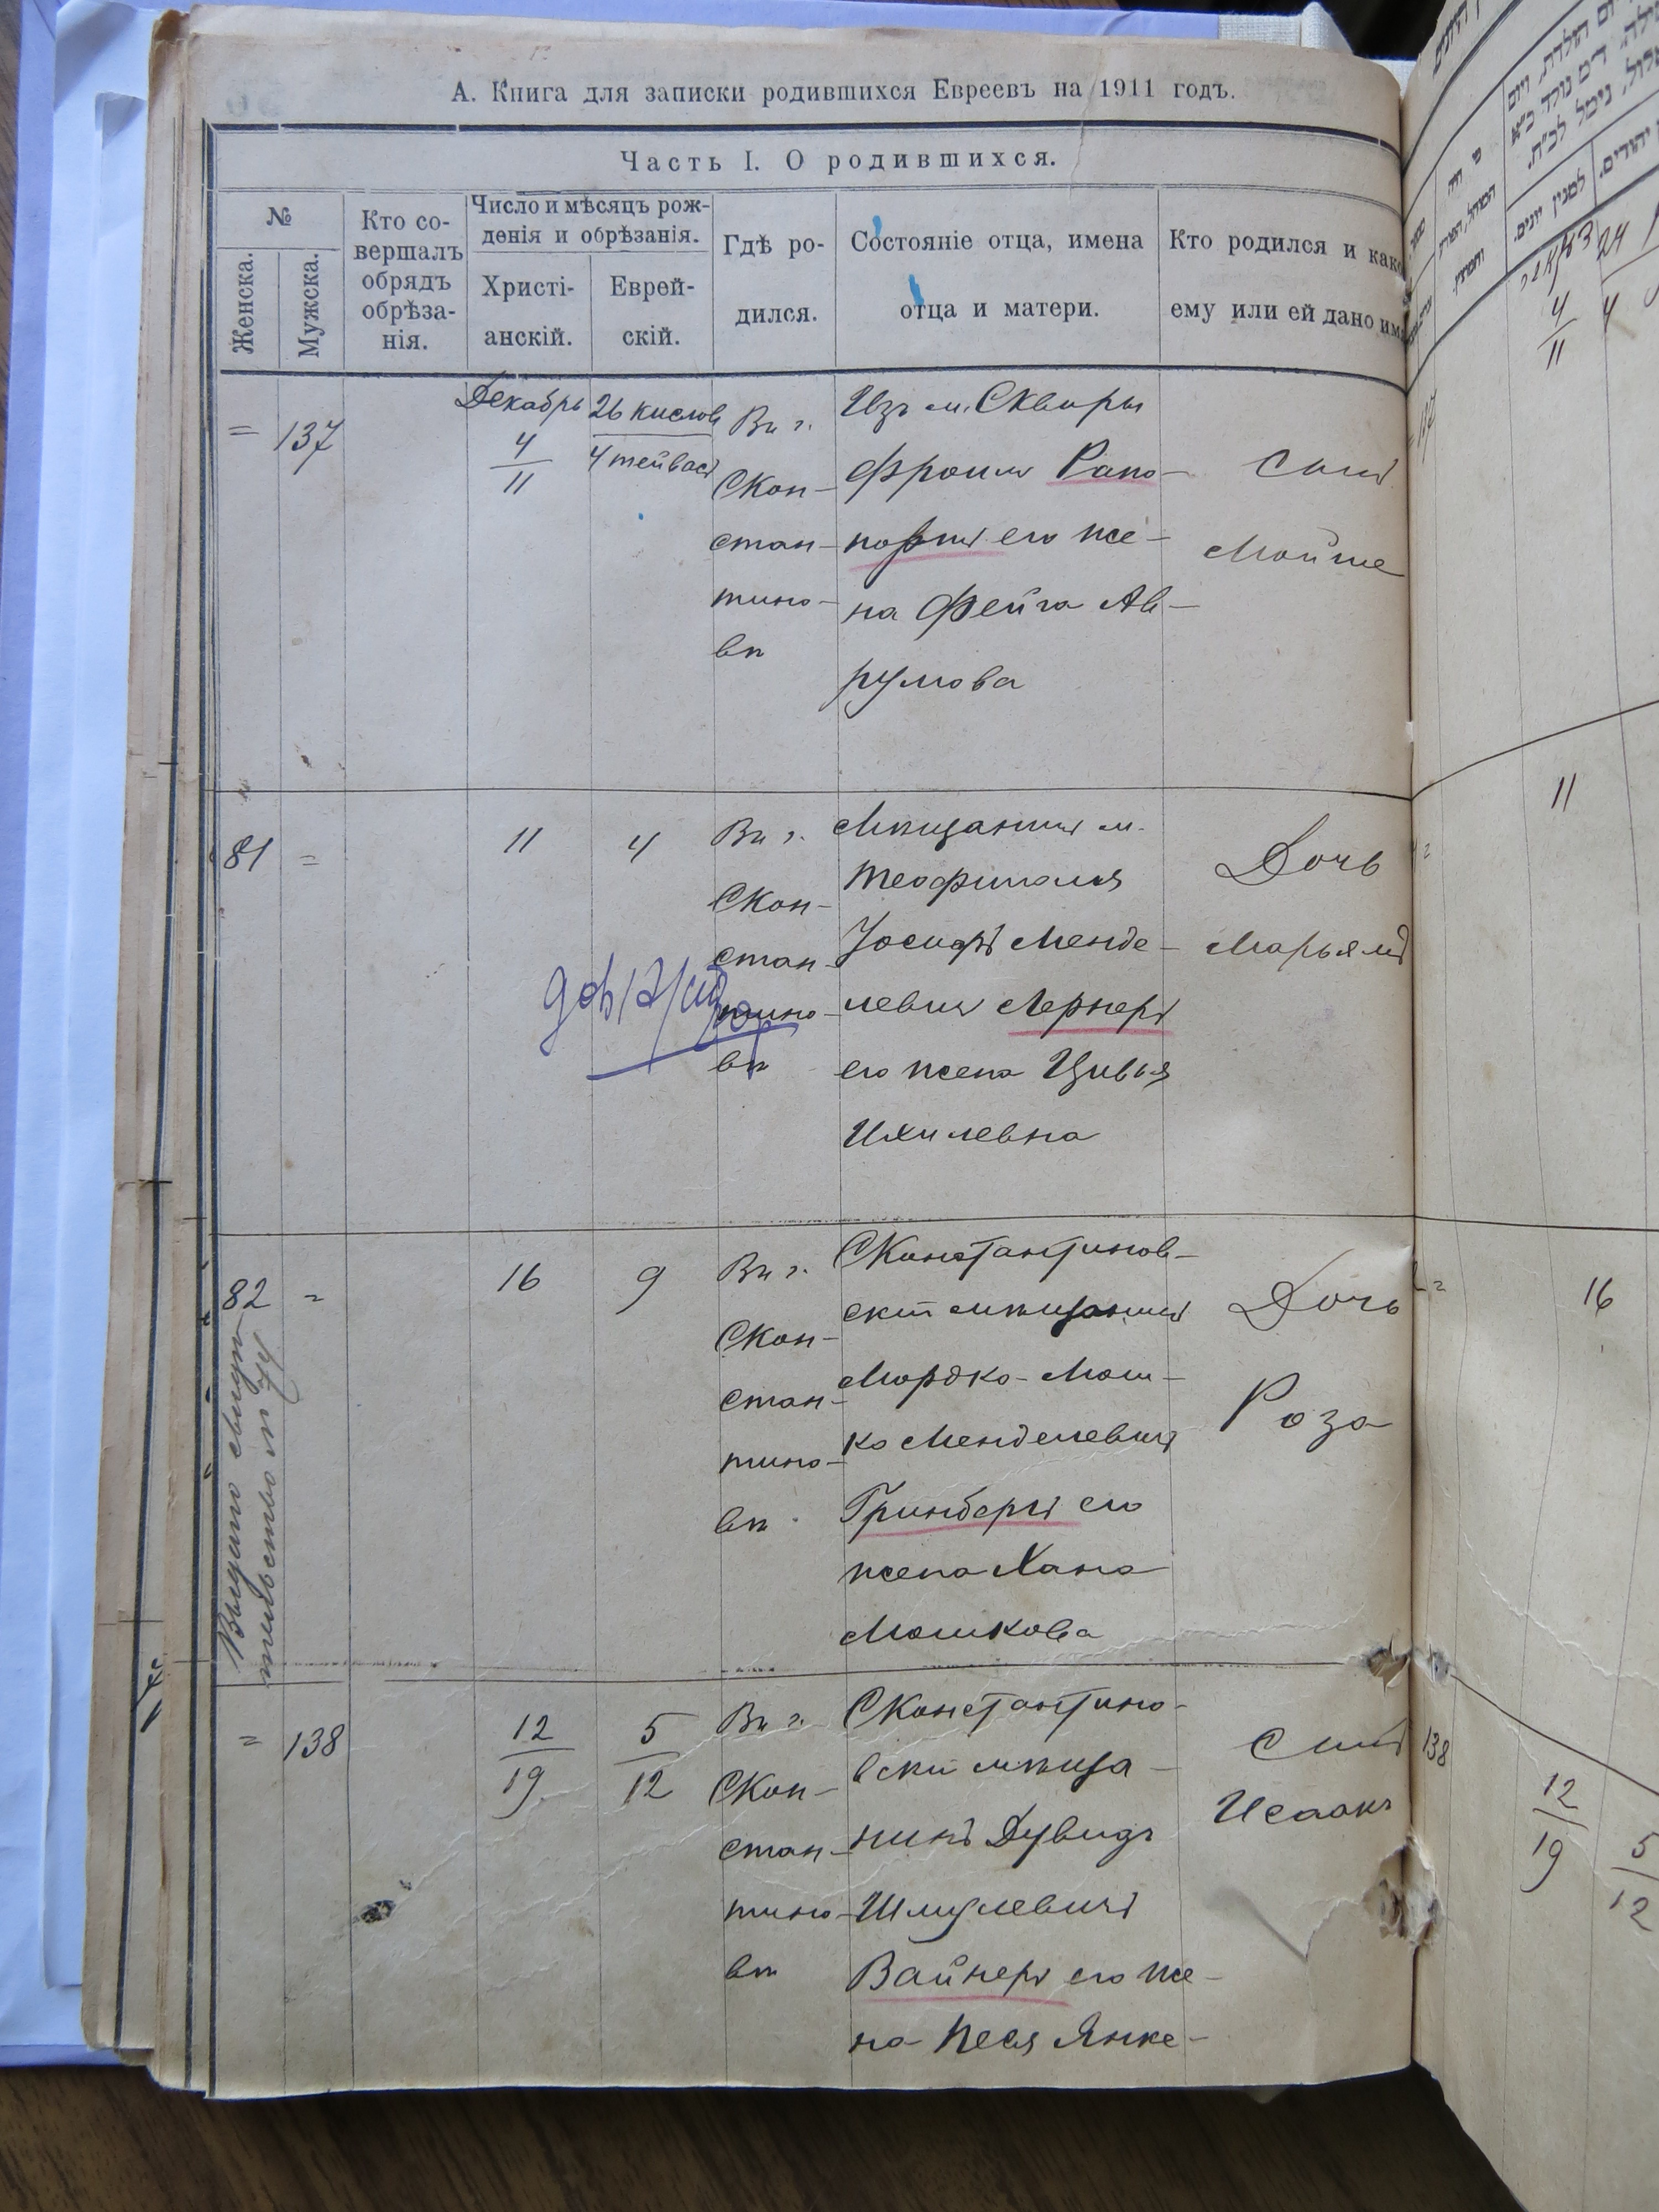 А. Книга для записки родившихся Евреевъ на 1911 годъ.
Часть I. О родившихся.
№
Женска.
Мужска.
Кто со-
вершалъ
обрядъ
обрѣза-
нія.
Число и мѣсяцъ рож-
денія и обрѣзанія.
Христі-
анскій.
Еврей-
скій.
Гдѣ ро-
дился.
Состояніе отца, имена
отца и матери.
Кто родился и како
ему или ей дано им
= 137
Декабрь
4
11
26 кислов
4 тейвас
Въ г.
Скон-
стан-
тино-
вѣ
Изъ м. Сквиры
Фроим Рапо-
порт его же-
на Фейга Ав-
румова
Сынъ
Мойше
81 =
11
4
Въ г.
Скон-
стан-
тино-
вѣ
Мѣщанинъ м.
Теофиполя
Іосифъ Менде-
левич Лернеръ
его жена Цивья
Ихилевна
Дочь
Марьямъ
82 =
Выдано свидѣ-
тельство № 74
16
9
Въ г.
Скон-
стан-
тино-
вѣ
Сконстантинов-
скій мѣщанинъ
Мордко-Мош-
ко Менделевичъ
Гринбергъ его
жена Хана
Мошкова
Дочь
Роза
= 138
12
19
5
12
Въ г.
Скон-
стан-
тино-
вѣ
Сконстантино-
вскій мѣща-
нинъ Дувидъ
Шмулевичъ
Вайнеръ его же-
на Песя Янке-
Сынъ
Исаакъ
4
11
4
11
16
138
12
19
5
12